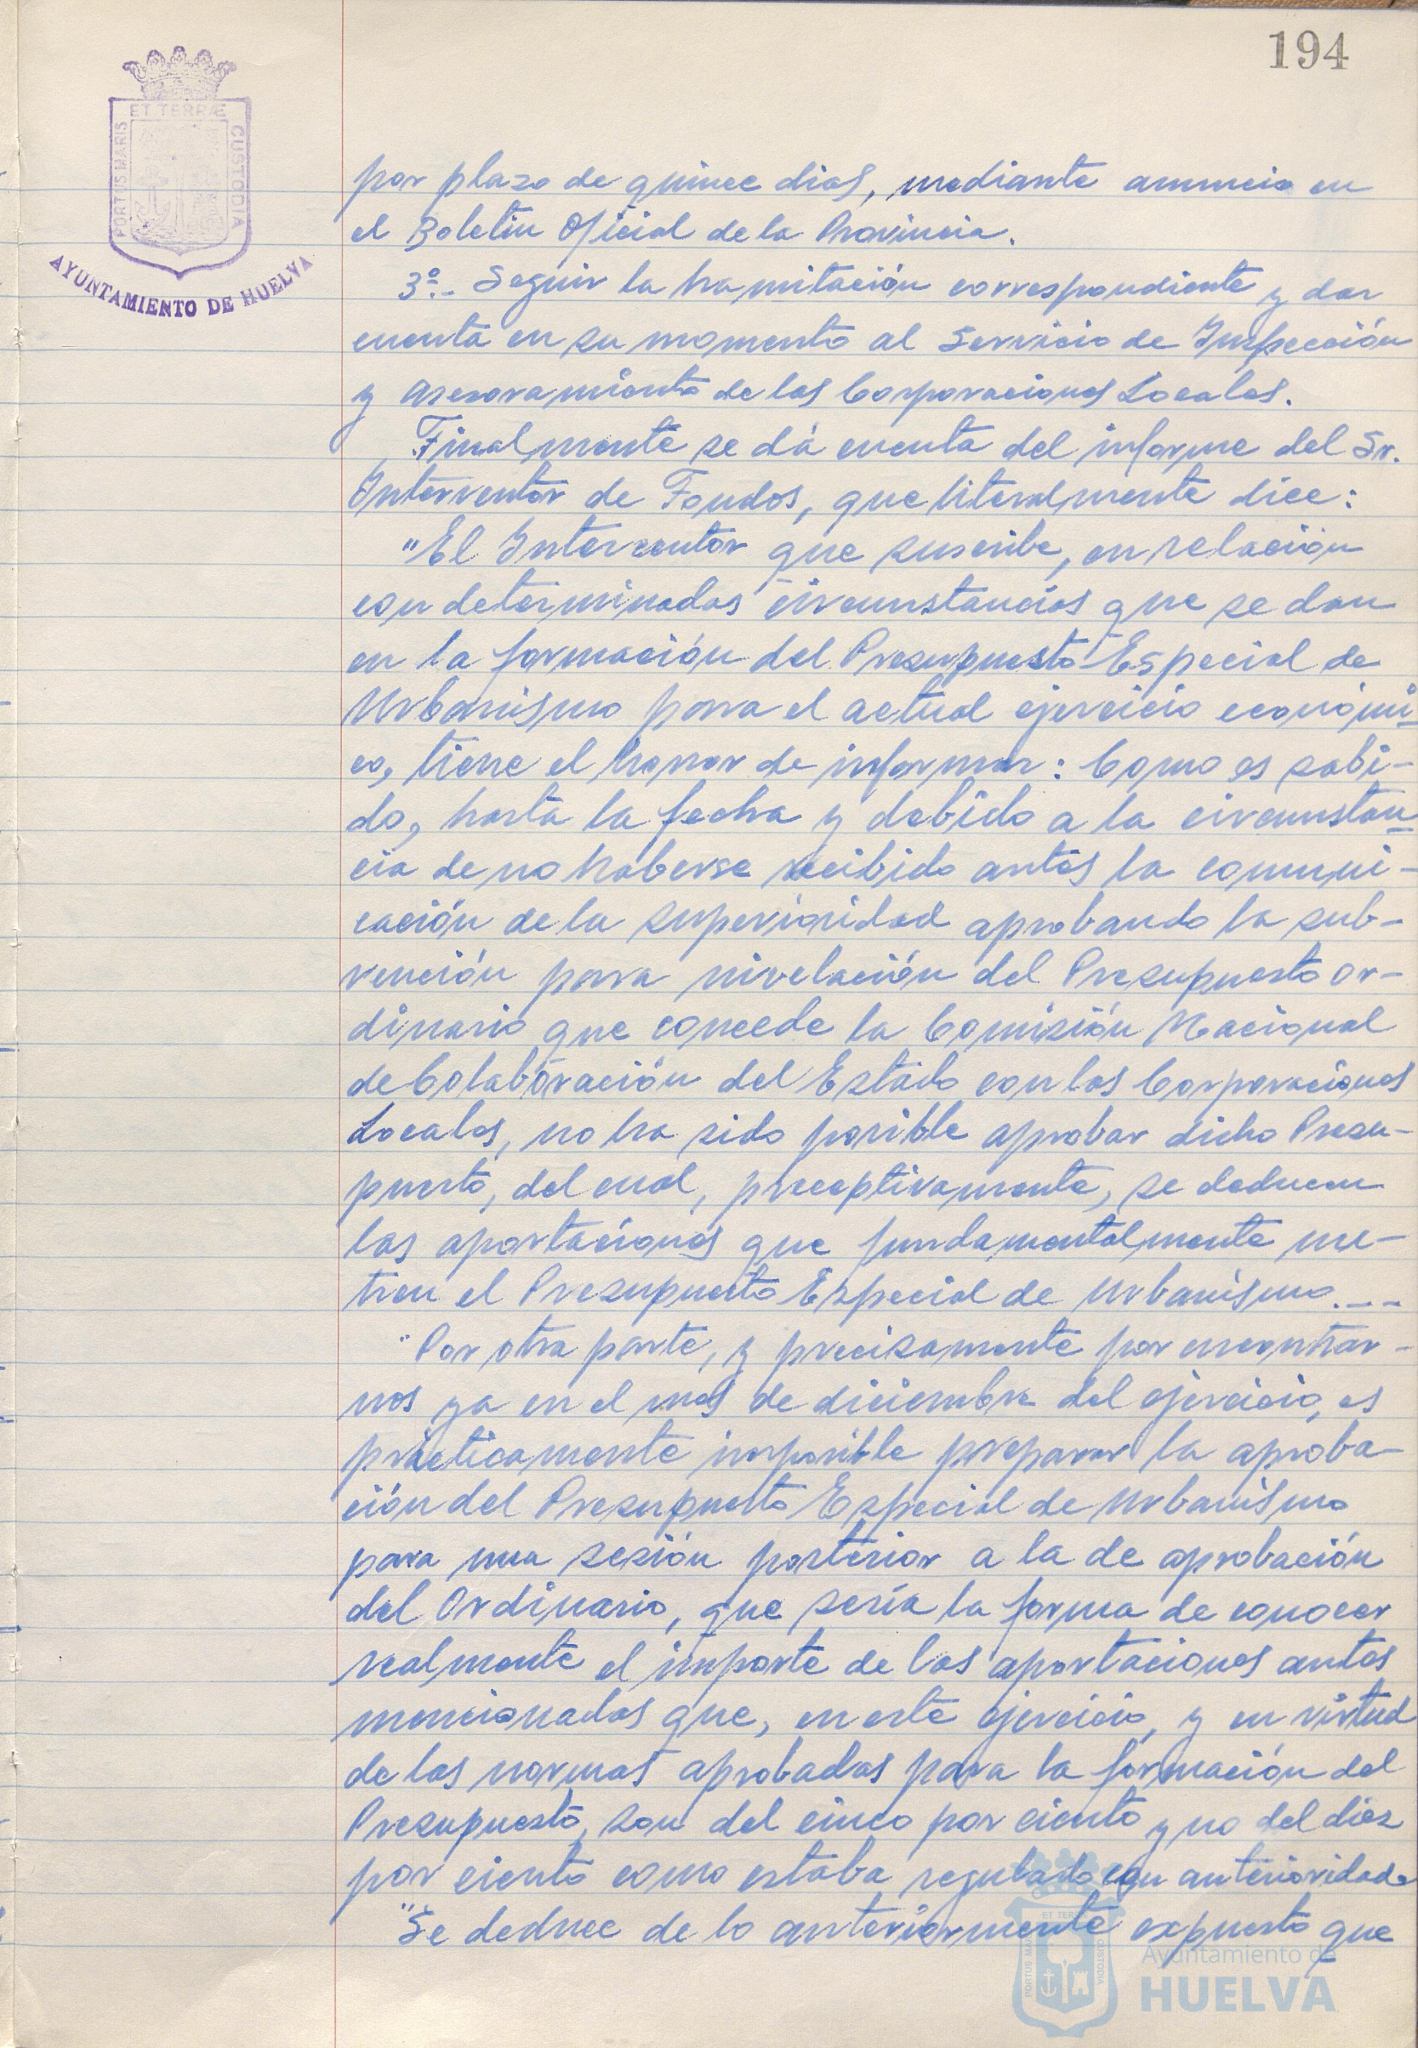 194
ET TERRÆ
PORTUS MARIS
CUSTODIA
AYUNTAMIENTO DE HUELVA
por plazo de quince dias, mediante anuncio en
el Boletin Oficial de la Provincia.
3º.- Seguir la tramitación correspondiente y dar
cuenta en su momento al Servicio de Inspección
y Asesoramiento de las Corporaciones Locales.
Finalmente se dá cuenta del informe del Sr.
Interventor de Fondos, que literalmente dice:
"El Interventor que suscribe, en relación
con determinadas circunstancias que se dan
en la formación del Presupuesto Especial de
Urbanismo para el actual ejercicio económi-
co, tiene el honor de informar: Como es sabi-
do, hasta la fecha y debido a la circunstan-
cia de no haberse recibido antes la comuni-
cación de la superioridad aprobando la sub-
vención para nivelación del Presupuesto or-
dinario que concede la Comisión Nacional
de Colaboración del Estado con las Corporaciones
Locales, no ha sido posible aprobar dicho Presu-
puesto, del cual, preceptivamente, se deducen
las aportaciones que fundamentalmente nu-
tren el Presupuesto Especial de Urbanismo.--
"Por otra parte, y precisamente por encontrar-
nos ya en el mes de diciembre del ejercicio, es
prácticamente imposible preparar la aproba-
ción del Presupuesto Especial de Urbanismo
para una sesión posterior a la de aprobación
del Ordinario, que sería la forma de conocer
realmente el importe de las aportaciones antes
mencionadas que, en este ejercicio, y en virtud
de las normas aprobadas para la formación del
Presupuesto, son del cinco por ciento y no del diez
por ciento como estaba regulado con anterioridad.
"Se deduce de lo anteriormente expuesto que
ET TERRÆ
CUSTODIA
Ayuntamiento de
HUELVA